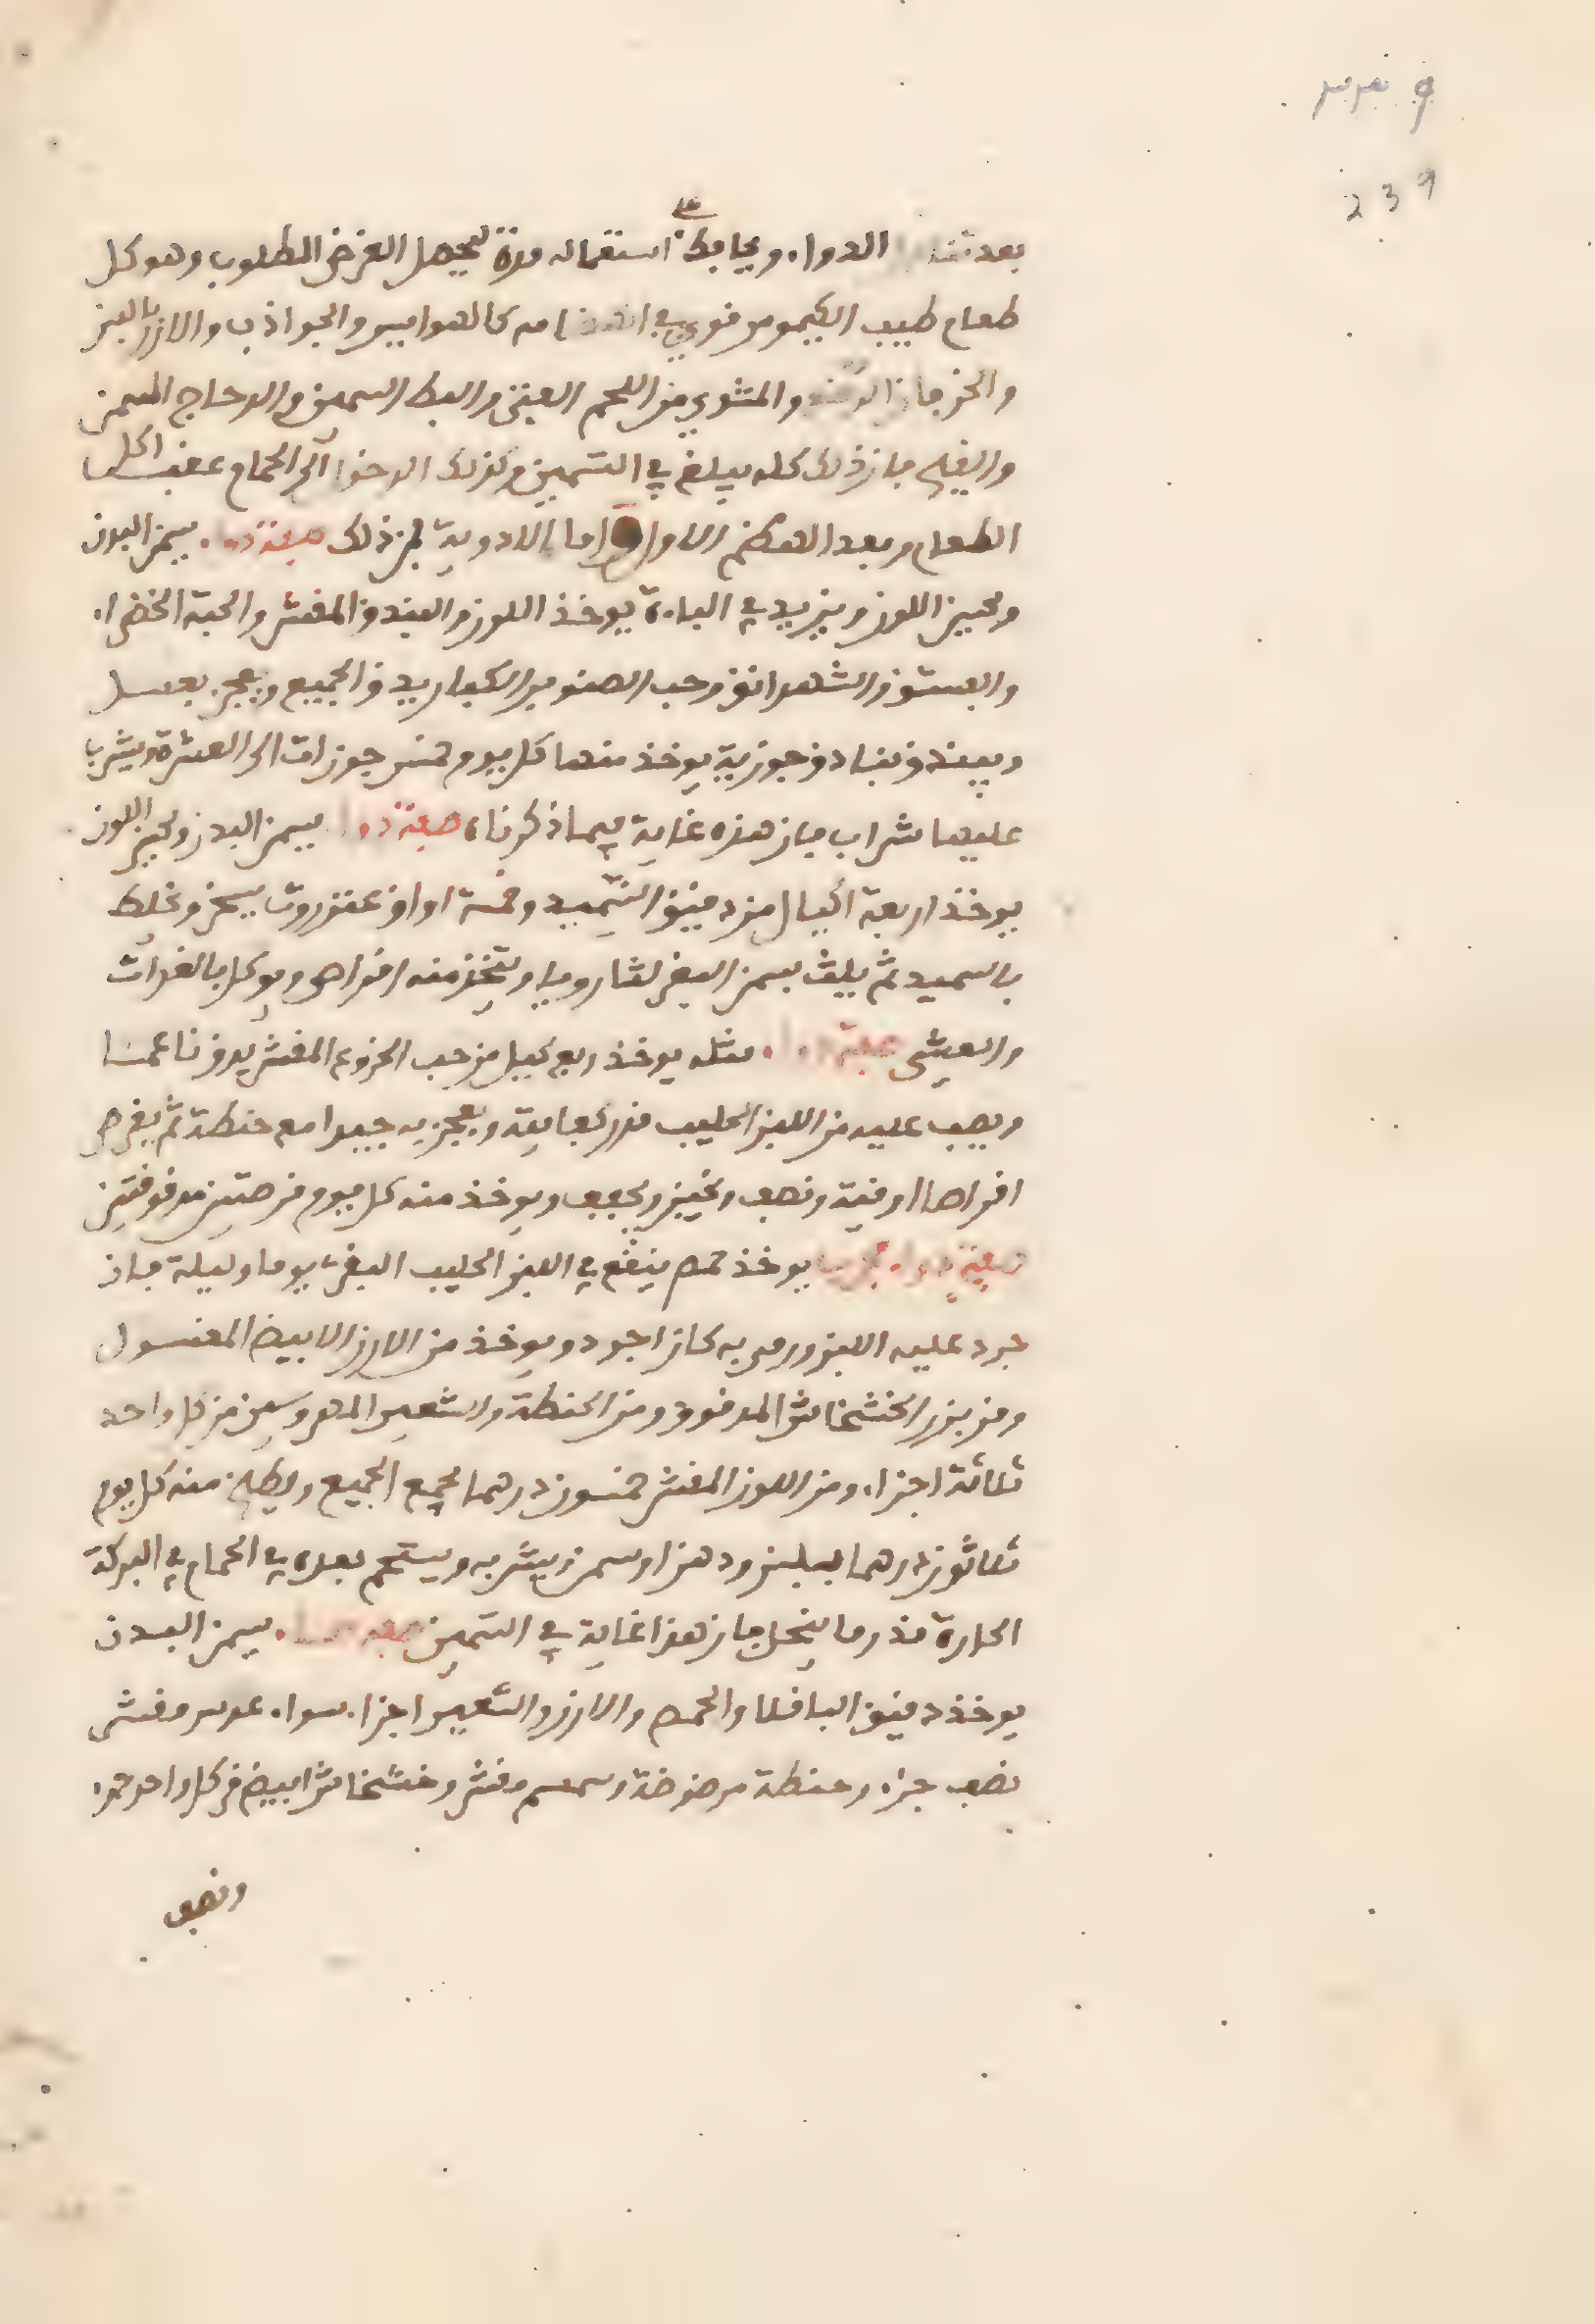 239
على
بعد الدواء ويحافظ استعماله مدة ليحصل الغرض المطلوب وهو كل
طعام طيب الكيموس قوي في كالهرايس والجواذب والارز بالبن
والمشوي من اللحم الفتي والبط السمين والدجاج المسمن
فان ذلك كله يبلغ في التسمين وكذلك الدخول الى الحمام عقب اكل
الطعام وبعد الهضم الاول واما الادوية فمن ذلك صفة دواء يسمن البدن
ويحسن اللون ويزيد في الباءة يوخذ اللوز والبندق المقشر والحبة الخضراء
والبستق والشهدانق وحب الصنوبر الكبار يدق الجميع ويعجن بعسل
ويبندق بنادق جوزية يوخذ منها كل يوم خمس جوزات الى العشرة ويشرب
عليها شراب فان هذه غاية فيما ذكرناه صفة دواء يسمن البدن ويحسن اللون
يوخذ اربعة اكيال من دقيق السميد وخمسة اواق عنزروت يسحق ويخلط
بالسميد ثم يلت بسمن البقر لتا رويا ويتخذ منه اقراص ويوكل بالغدات
والعشي صفة دواء مثله يوخذ ربع كيل من حب الخروع المقشر يدق ناعما
ويصب عليه من اللبن الحليب قدر كفايته ويعجن به جيدا مع حنطة ثم يقرص
اقراصا اوقية ونصف ويخبز ويجفف ويوخذ منه كل يوم قرصتين مدقوقتين
صفة دواء يوخذ حمص ينقع في البن الحليب البقري يوما وليلة فان
جرد عليه اللبن ورمي به كان اجود ويوخذ من الارز الابيض المغسول
ومن بزر الخشخاش المدقوق ومن الحنطة والشعير المهروسين من كل واحد
ثلاثة اجزاء ومن اللوز المقشر خمسون درهما يجمع الجميع ويطبخ منه كل يوم
ثلاثون درهما بلبن ودهن او سمن ويشربه ويستحم بعده في الحمام في البركة
الحارة قدر ما ينحل فان هذا غاية في التسمين صفة يسمن البدن
يوخذ دقيق الباقلا والحمص والارز والشعير اجزاء سواء عدس مقشر
نصف جزء وحنطة مرضوضة وسمسم مقشر وخشخاش ابيض من كل واحد جزء
ونصف